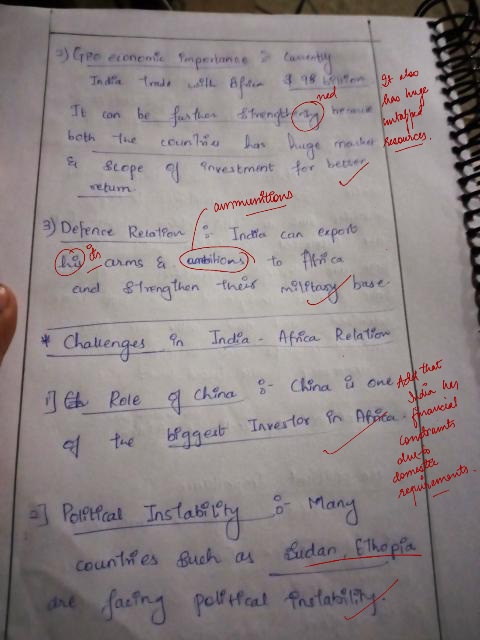 2) GEO economic importance :- Currently
India trade with Africa $ 98 billion
ned
It can be further strengthening because
both the countries has huge market
& scope of investment for better
return.
It also
has huge
untapped
resources.
ammunitions
3) Defence Relation :- India can export
his its arms & ambitions to Africa
and strengthen their military base.
* Challenges in India - Africa Relation
1] Role of China :- China is one
of the biggest Investor in Africa.
Add that
India has
financial
constraints
due to
domestic
requirements.
2] Political Instability :- Many
countries such as Sudan, Ethopia
are facing political instability.